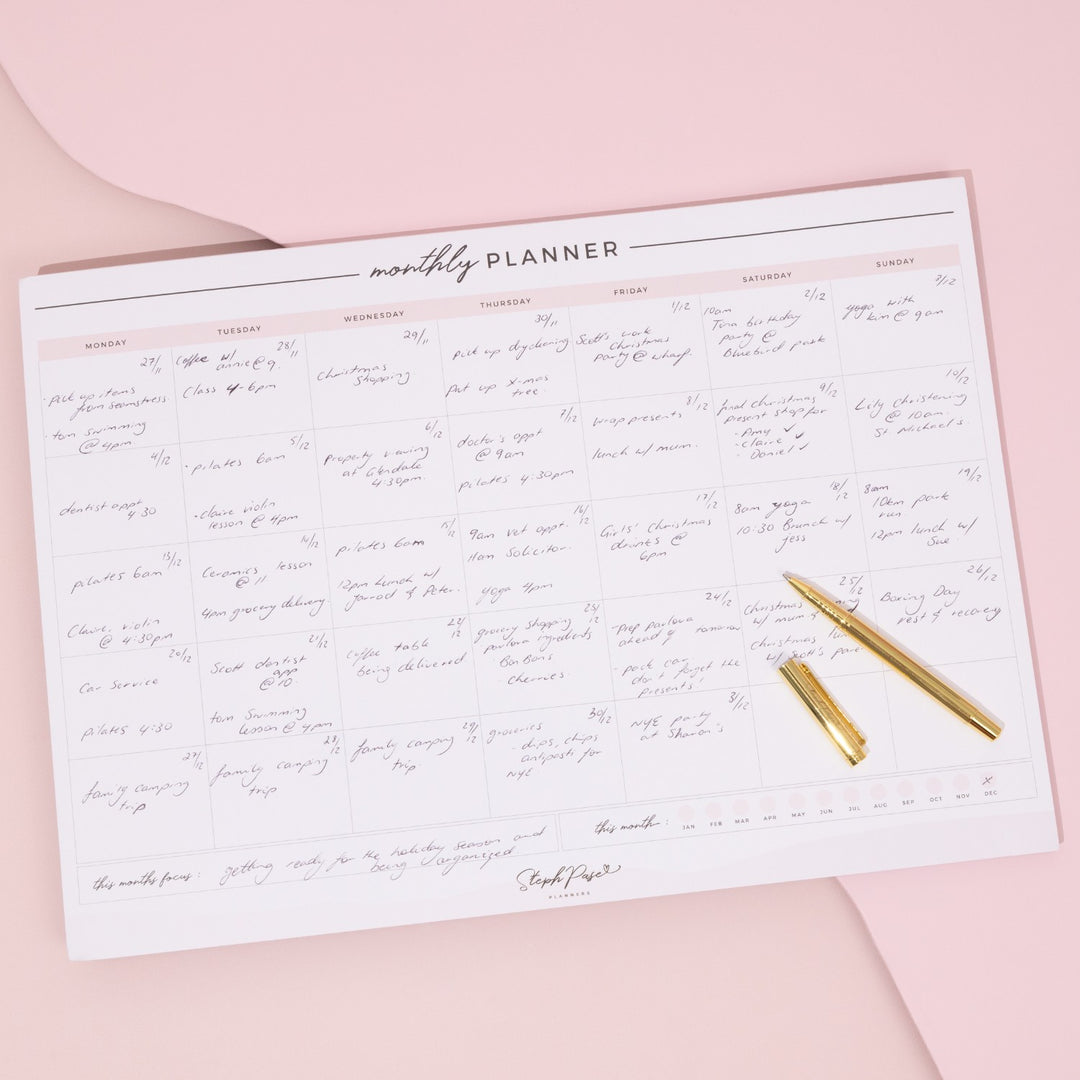 monthly PLANNER
MONDAY
TUESDAY
WEDNESDAY
THURSDAY
FRIDAY
SATURDAY
SUNDAY
27/11
· pick up items
from seamstress.
· tom swimming
@ 4pm
28/11
Coffee w/
annie @ 9.
Class 4-6pm
29/11
Christmas
Shopping
30/11
pick up dryclening
put up x-mas
tree.
1/12
Scott's work
Christmas
party @ wharf.
2/12
10am
Tina birthday
party @
Bluebird park
3/12
yoga with
kim @ 9am
4/12
dentist appt
4:30
5/12
· pilates 6am
· claire violin
lesson @ 4pm
6/12
Property viewing
at Glendale
4:30pm.
7/12
doctor's appt
@ 9am
pilates 4:30pm
8/12
wrap presents
lunch w/ mum.
9/12
final Christmas
present shop for
- Amy ✓
- Claire ✓
- Daniel ✓
10/12
Lily Christening
@ 10am.
St. Michael's.
13/12
pilates 6am
Claire, violin
@ 4:30pm
14/12
Ceramics lesson
@ 11
4pm grocery delivery.
15/12
pilates 6am
12pm Lunch w/
Jarrod & Peter.
16/12
9am vet appt.
11am Solicitor.
yoga 4pm
17/12
Girls' Christmas
drinks @
6pm
18/12
8am yoga
10:30 Brunch w/
Jess
19/12
8am
10km park
run
12pm lunch w/
Sue.
20/12
Car Service
pilates 4:30
21/12
Scott dentist
app
@ 10.
tom Swimming
lesson @ 4pm
22/12
Coffee table
being delivered
23/12
grocery shopping
pavlova ingredients
· BonBons
· cherries.
24/12
- Prep pavlova
ahead of tomorrow
- pack car
don't forget the
presents!
25/12
Christmas
w/ mum
Christmas
w/ Scott's
26/12
Boxing Day
rest & recovery
27/12
family camping
trip
28/12
family camping
trip
29/12
family camping
trip.
30/12
groceries
- dips, chips
antipasti for
NYE
31/12
NYE party
at Sharon's
this months focus :
getting ready for the holiday season and
being organized
this month :
JAN FEB MAR APR MAY JUN JUL AUG SEP OCT NOV DEC
X
Steph Pase
PLANNERS